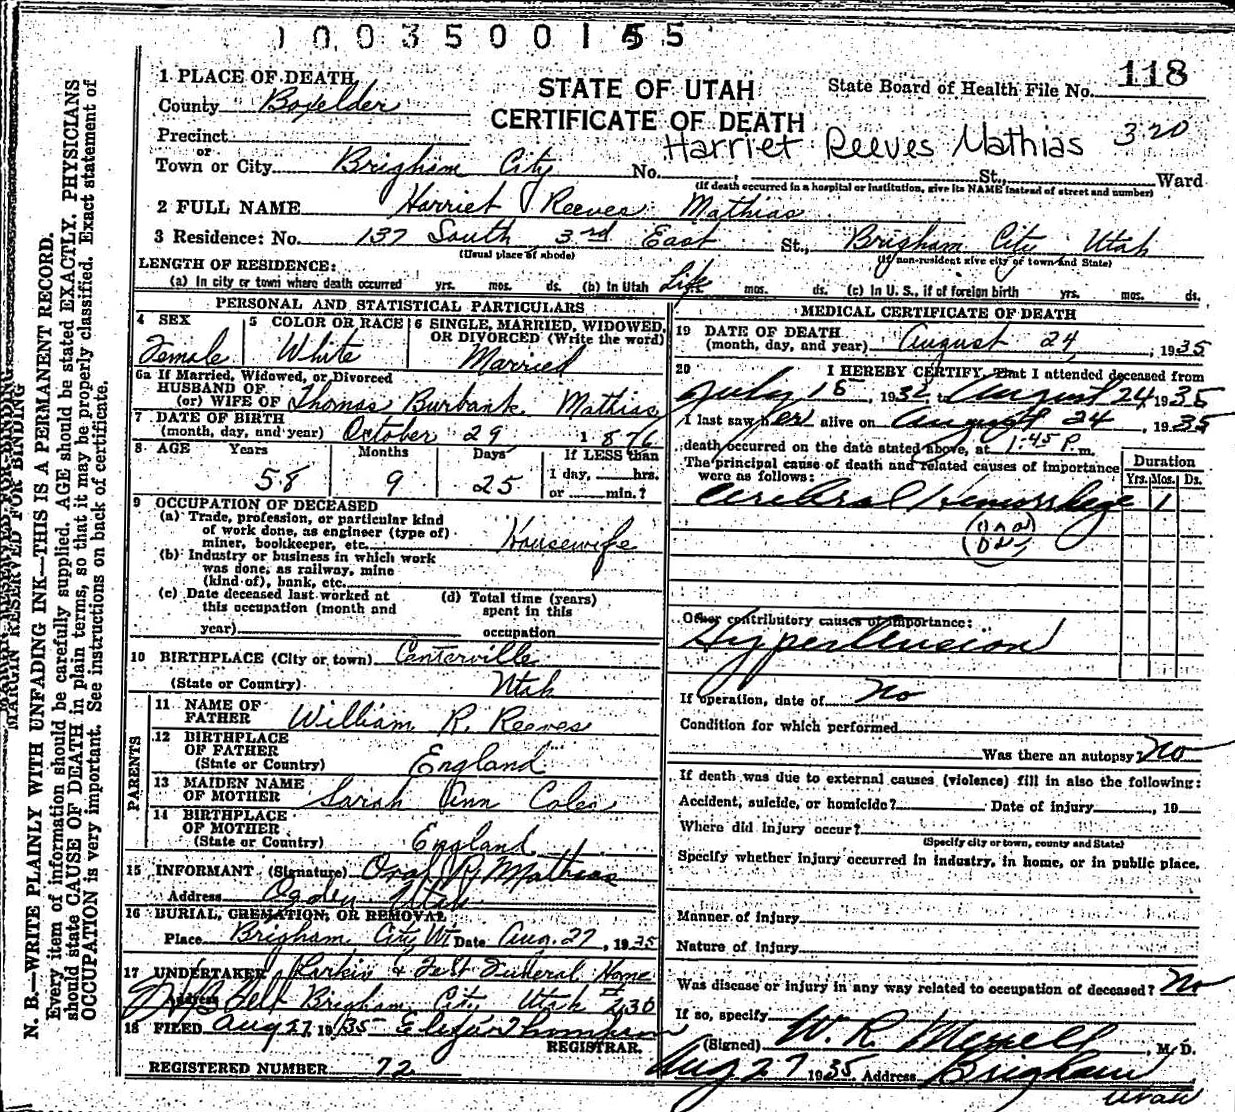 1003500155
1 PLACE OF DEATH
County Boxelder
STATE OF UTAH
CERTIFICATE OF DEATH
State Board of Health File No. 118
Harriet Reeves Mathias 320
Precinct
or
Town or City Brigham City No. St., Ward
(If death occurred in a hospital or institution, give its NAME instead of street and number)
2 FULL NAME Harriet Reeves Mathias
3 Residence: No. 137 South 3rd East St., Brigham City Utah
(Usual place of abode) (If non-resident give city or town and State)
LENGTH OF RESIDENCE:
(a) In city or town where death occurred yrs. mos. ds. (b) In Utah Life mos. ds. (c) In U. S., if of foreign birth yrs. mos. ds.
PERSONAL AND STATISTICAL PARTICULARS
4 SEX Female
5 COLOR OR RACE White
6 SINGLE, MARRIED, WIDOWED, OR DIVORCED (Write the word) Married
6a If Married, Widowed, or Divorced
HUSBAND OF
(or) WIFE OF Thomas Burbank Mathias
7 DATE OF BIRTH
(month, day, and year) October 29 1876
8 AGE Years Months Days If LESS than
58 9 25 1 day, hrs.
or min.?
9 OCCUPATION OF DECEASED
(a) Trade, profession, or particular kind
of work done, as engineer (type of)
miner, bookkeeper, etc. Housewife
(b) Industry or business in which work
was done, as railway, mine
(kind of), bank, etc.
(c) Date deceased last worked at
this occupation (month and
year)
(d) Total time (years)
spent in this
occupation
10 BIRTHPLACE (City or town) Centerville
(State or Country) Utah
PARENTS
11 NAME OF
FATHER William R. Reeves
12 BIRTHPLACE
OF FATHER
(State or Country) England
13 MAIDEN NAME
OF MOTHER Sarah Ann Coles
14 BIRTHPLACE
OF MOTHER
(State or Country) England
15 INFORMANT (Signature) R. Mathias
Address Ogden Utah
16 BURIAL, CREMATION, OR REMOVAL
Place Brigham City Ut Date Aug. 27, 1935
17 UNDERTAKER Larkin & Felt Funeral Home
Address Felt Brigham City Utah 230
18 FILED Aug 27 1935 Thompson
REGISTRAR.
REGISTERED NUMBER 72
MEDICAL CERTIFICATE OF DEATH
19 DATE OF DEATH
(month, day, and year) August 24, 1935
20 I HEREBY CERTIFY, That I attended deceased from
July 15, 1932, to August 24 1935
I last saw her alive on August 24, 1935
death occurred on the date stated above, at 1:45 P. m.
The principal cause of death and related causes of importance
were as follows:
Duration
Yrs. Mos. Ds.
Cerebral Hemorrhage 1
Other contributory causes of importance:
Hypertension
If operation, date of no
Condition for which performed
Was there an autopsy? No
If death was due to external causes (violence) fill in also the following:
Accident, suicide, or homicide? Date of injury , 19
Where did injury occur?
(Specify city or town, county and State)
Specify whether injury occurred in industry, in home, or in public place.
Manner of Injury
Nature of Injury
Was disease or injury in any way related to occupation of deceased? No
If so, specify
(Signed) W. R. Merrell, M. D.
Aug 27 1935 Address Brigham
Utah
MARGIN RESERVED FOR BINDING
N. B.—WRITE PLAINLY WITH UNFADING INK—THIS IS A PERMANENT RECORD.
Every item of information should be carefully supplied. AGE should be stated EXACTLY. PHYSICIANS
should state CAUSE OF DEATH in plain terms, so that it may be properly classified. Exact statement of
OCCUPATION is very important. See instructions on back of certificate.